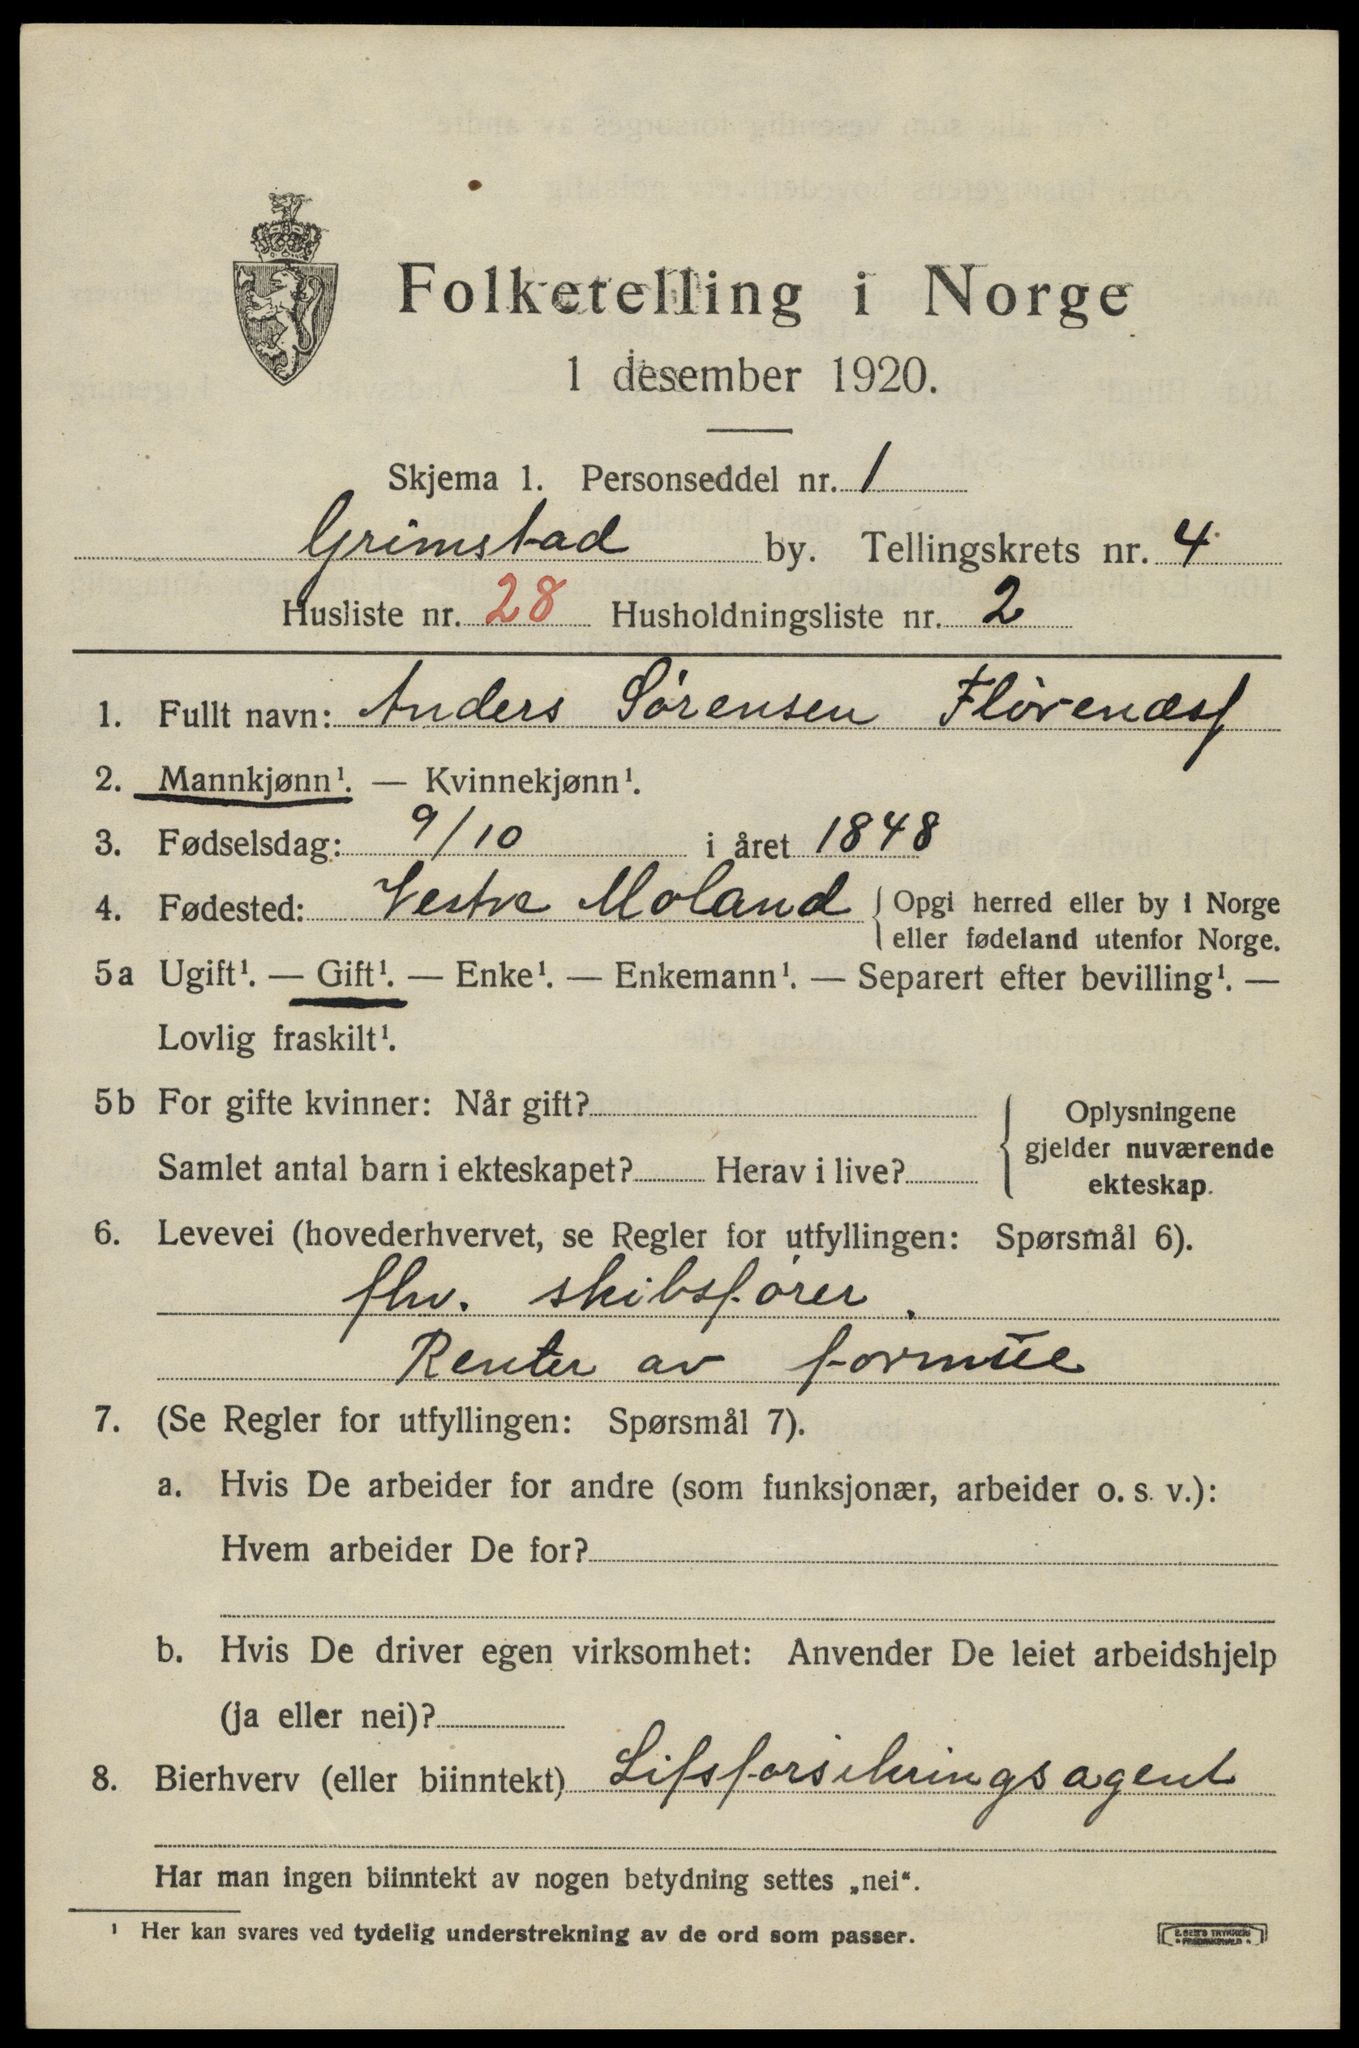 Folketelling i Norge
1 desember 1920.
Skjema 1. Personseddel nr. 1
Grimstad by. Tellingskrets nr. 4
Husliste nr. 28 Husholdningsliste nr. 2
1. Fullt navn: Anders Sørensen Flørenæs
2. Mannkjønn¹. — Kvinnekjønn¹.
3. Fødselsdag: 9/10 i året 1848
4. Fødested: Vestre Moland { Opgi herred eller by i Norge
eller fødeland utenfor Norge.
5a Ugift¹. — Gift¹. — Enke¹. — Enkemann¹. — Separert efter bevilling¹. —
Lovlig fraskilt¹.
5b For gifte kvinner: Når gift?
Samlet antal barn i ekteskapet? Herav i live?
Oplysningene
gjelder nuværende
ekteskap.
6. Levevei (hovederhvervet, se Regler for utfyllingen: Spørsmål 6).
fhv. skibsfører.
Renter av formue
7. (Se Regler for utfyllingen: Spørsmål 7).
a. Hvis De arbeider for andre (som funksjonær, arbeider o. s. v.):
Hvem arbeider De for?
b. Hvis De driver egen virksomhet: Anvender De leiet arbeidshjelp
(ja eller nei)?
8. Bierhverv (eller biinntekt) Lifsforsikringsagent
Har man ingen biinntekt av nogen betydning settes „nei“.
¹ Her kan svares ved tydelig understrekning av de ord som passer.